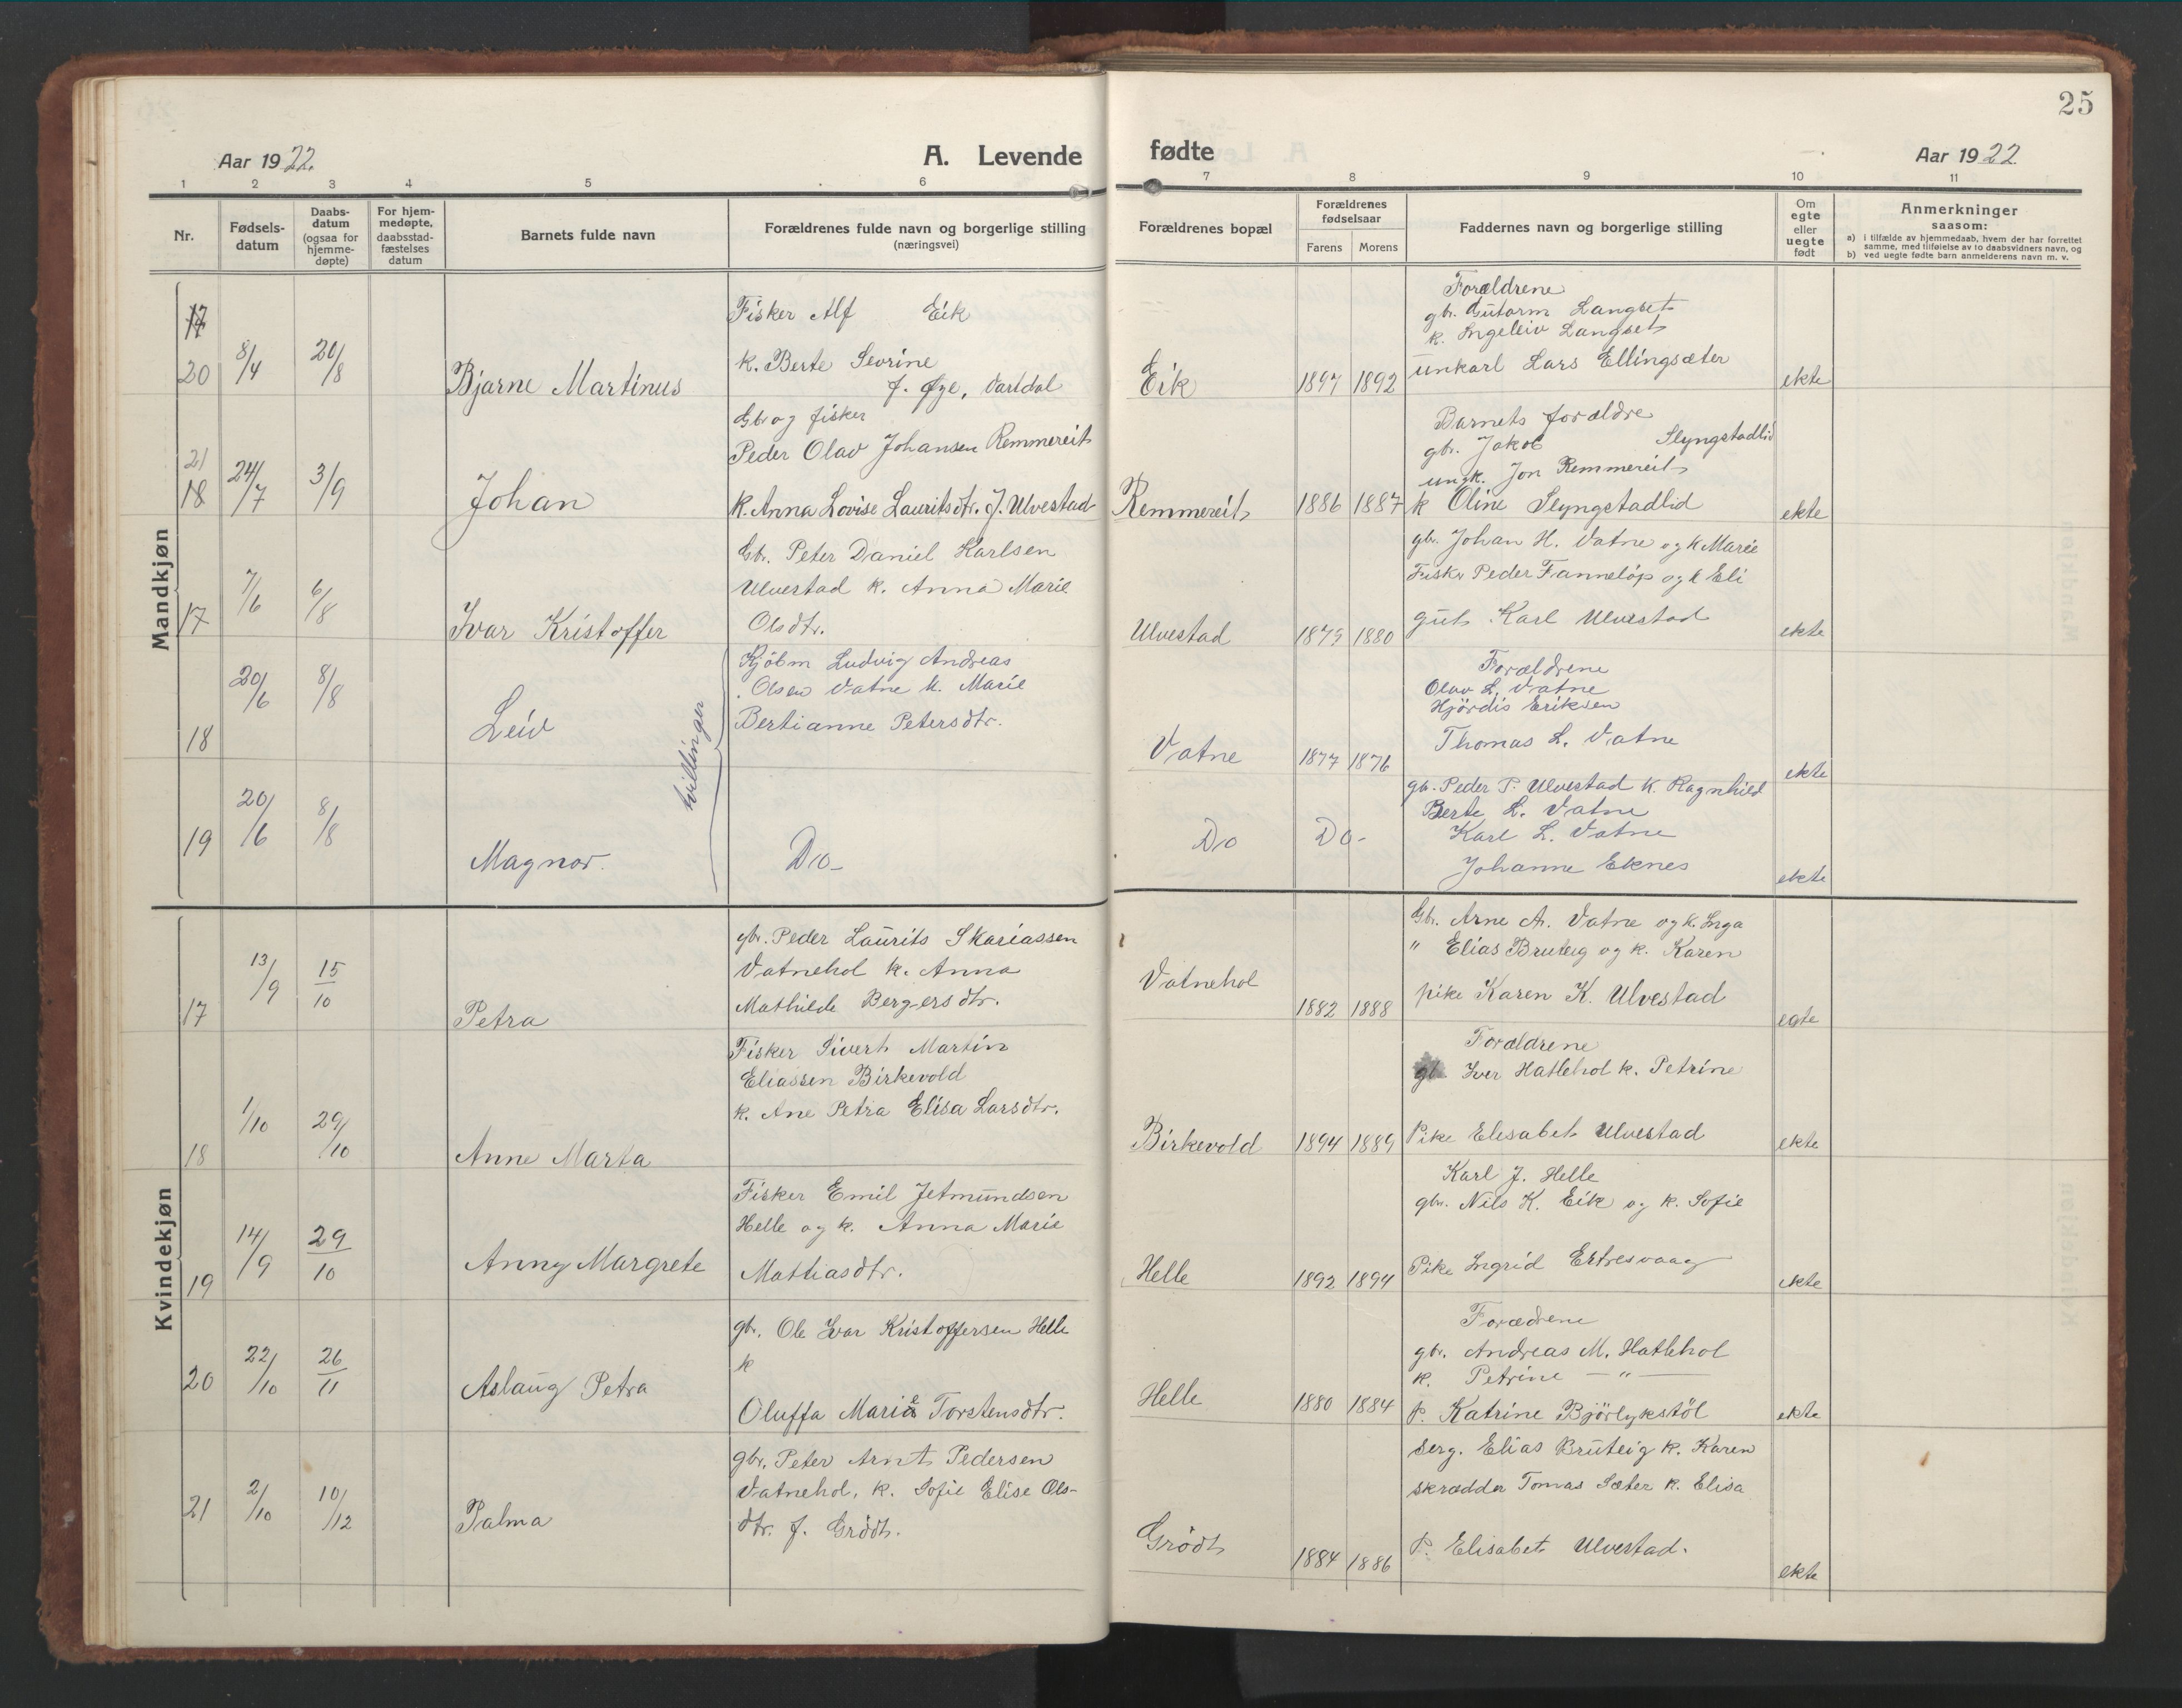 25
Aar 1922.
A. Levende fødte
Aar 1922
1 2 3 4 5 6 7 8 9 10 11
Nr.
Fødsels-
datum
Daabs-
datum
(ogsaa for
hjemme-
døpte)
For hjem-
medøpte,
daabsstad-
fæstelses
datum
Barnets fulde navn
Forældrenes fulde navn og borgerlige stilling
(næringsvei)
Forældrenes bopæl
Forældrenes
fødselsaar
Farens Morens
Faddernes navn og borgerlige stilling
Om
egte
eller
uegte
født
Anmerkninger
saasom:
a) i tilfælde av hjemmedaab, hvem der har forrettet
samme, med tilføielse av to daabsvidners navn, og
b) ved uegte fødte barn anmelderens navn m. v.
Mandkjøn
17
20
8/4
20/8
Bjarne Martinus
Fisker Alf Eik
k. Berte Sevrine
f. Øye, Vartdal
Eik
1897 1892
Forældrene
gbr. Gutorm Langset
k. Ingeleiv Langset
unkarl Lars Ellingsæter
ekte
21
18
24/7
3/9
Johan
Gbr og fisker
Peder Olav Johansen Remmereit
k. Anna Lovise Lauritsdtr. f. Ulvestad
Remmereit
1886 1887
Barnets forældre
gbr. Jakob Slyngstadlid
ungk. Jon Remmereit
k Oline Slyngstadlid
ekte
17
7/6
6/8
Ivar Kristoffer
Gbr. Peter Daniel Karlsen
Ulvestad k. Anna Marie
Olsdtr.
Ulvestad
1879 1880
gbr. Johan H. Vatne og k Marie
Fisker Peder Fanneløp og k Eli
gut Karl Ulvestad
ekte
18
20/6
8/8
Leiv
tvillinger
Kjøbm Ludvig Andreas
Olsen Vatne k. Marie
Bertianne Petersdtr.
Vatne
1877 1876
Forældrene
Olav L. Vatne
Hjördis Eriksen
Thomas L. Vatne
ekte
19
20/6
8/8
Magnor.
Do-
Do
Do-
gbr. Peder P. Ulvestad k. Ragnhild
Berte L. Vatne
Karl L. Vatne
Johanne Eknes
ekte
Kvindekjøn
17
13/9
15/10
Petra
gbr. Peder Laurits Skariassen
Vatnehol k. Anna
Mathilde Bergersdtr.
Vatnehol
1882 1888
Gbr. Arne A. Vatne og k. Inga
" Elias Bruteig og k. Karen
pike Karen K. Ulvestad
egte
18
1/10
29/10
Anne Marta
Fisker Sivert Martin
Eliassen Birkevold
k. Ane Petra Elisa Larsdtr.
Birkevold
1894 1889
Forældrene
gb. Iver Hatlehol k. Petrine
Pike Elisabet Ulvestad
ekte
19
14/9
29/10
Anny Margrete
Fisker Emil Jetmundsen
Helle og k. Anna Marie
Mattiasdtr.
Helle
1892 1894
Karl J. Helle
gbr. Nils K. Eik og k. Sofie
Pike Ingrid Ertresvaag
ekte
20
22/10
26/11
Aslaug Petra
gbr. Ole Ivar Kristoffersen Helle
k
Oluffa Marie Torstensdtr.
Helle
1880 1884
Forædrene
gbr. Andreas M. Hatlehol
k. Petrine — " —
P. Katrine Björlykstöl
ekte
21
2/10
10/12
Palma
gbr. Peter Arnt Pedersen
Vatnehol, k. Sofie Elise Ols-
dtr. f. Grödt.
Grödt
1884 1886
Serg. Elias Bruteig k. Karen
skrædder Tomas Sæter k. Elisa
P. Elisabet Ulvestad.
ekte